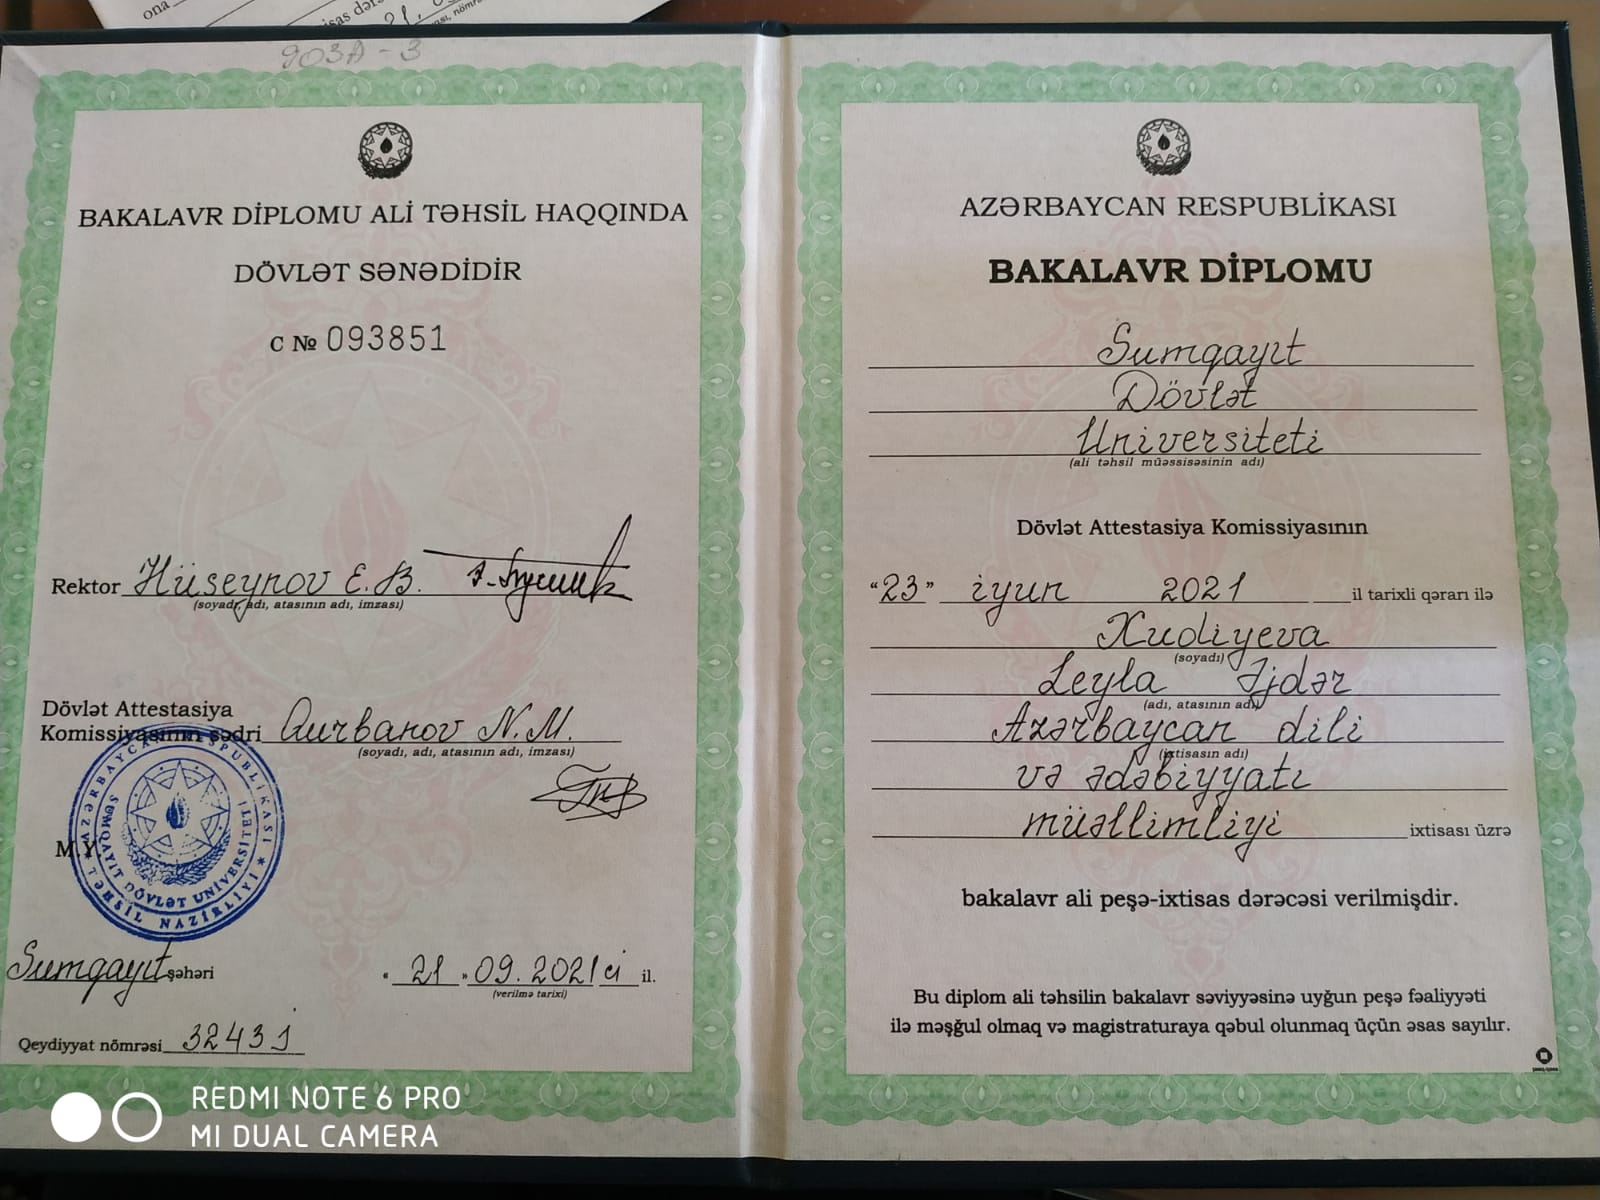 ona
903A - 3
BAKALAVR DİPLOMU ALİ TƏHSİL HAQQINDA
DÖVLƏT SƏNƏDİDİR
C № 093851
Rektor Hüseynov E.B.
(soyadı, adı, atasının adı, imzası)
Dövlət Attestasiya
Komissiyasının sədri Qurbanov N.M.
(soyadı, adı, atasının adı, imzası)
M.Y.
AZƏRBAYCAN RESPUBLİKASI
TƏHSİL NAZİRLİYİ
SUMQAYIT DÖVLƏT UNİVERSİTETİ
Sumqayıt şəhəri
" 21 " 09. 2021 ci il.
(verilmə tarixi)
Qeydiyyat nömrəsi 32431
AZƏRBAYCAN RESPUBLİKASI
BAKALAVR DİPLOMU
Sumqayıt
Dövlət
Universiteti
(ali təhsil müəssisəsinin adı)
Dövlət Attestasiya Komissiyasının
"23" iyun 2021 il tarixli qərarı ilə
Xudiyeva
(soyadı)
Leyla Əjdər
(adı, atasının adı)
Azərbaycan dili
(ixtisasın adı)
və ədəbiyyatı
müəllimliyi ixtisası üzrə
bakalavr ali peşə-ixtisas dərəcəsi verilmişdir.
Bu diplom ali təhsilin bakalavr səviyyəsinə uyğun peşə fəaliyyəti
ilə məşğul olmaq və magistraturaya qəbul olunmaq üçün əsas sayılır.
REDMI NOTE 6 PRO
MI DUAL CAMERA